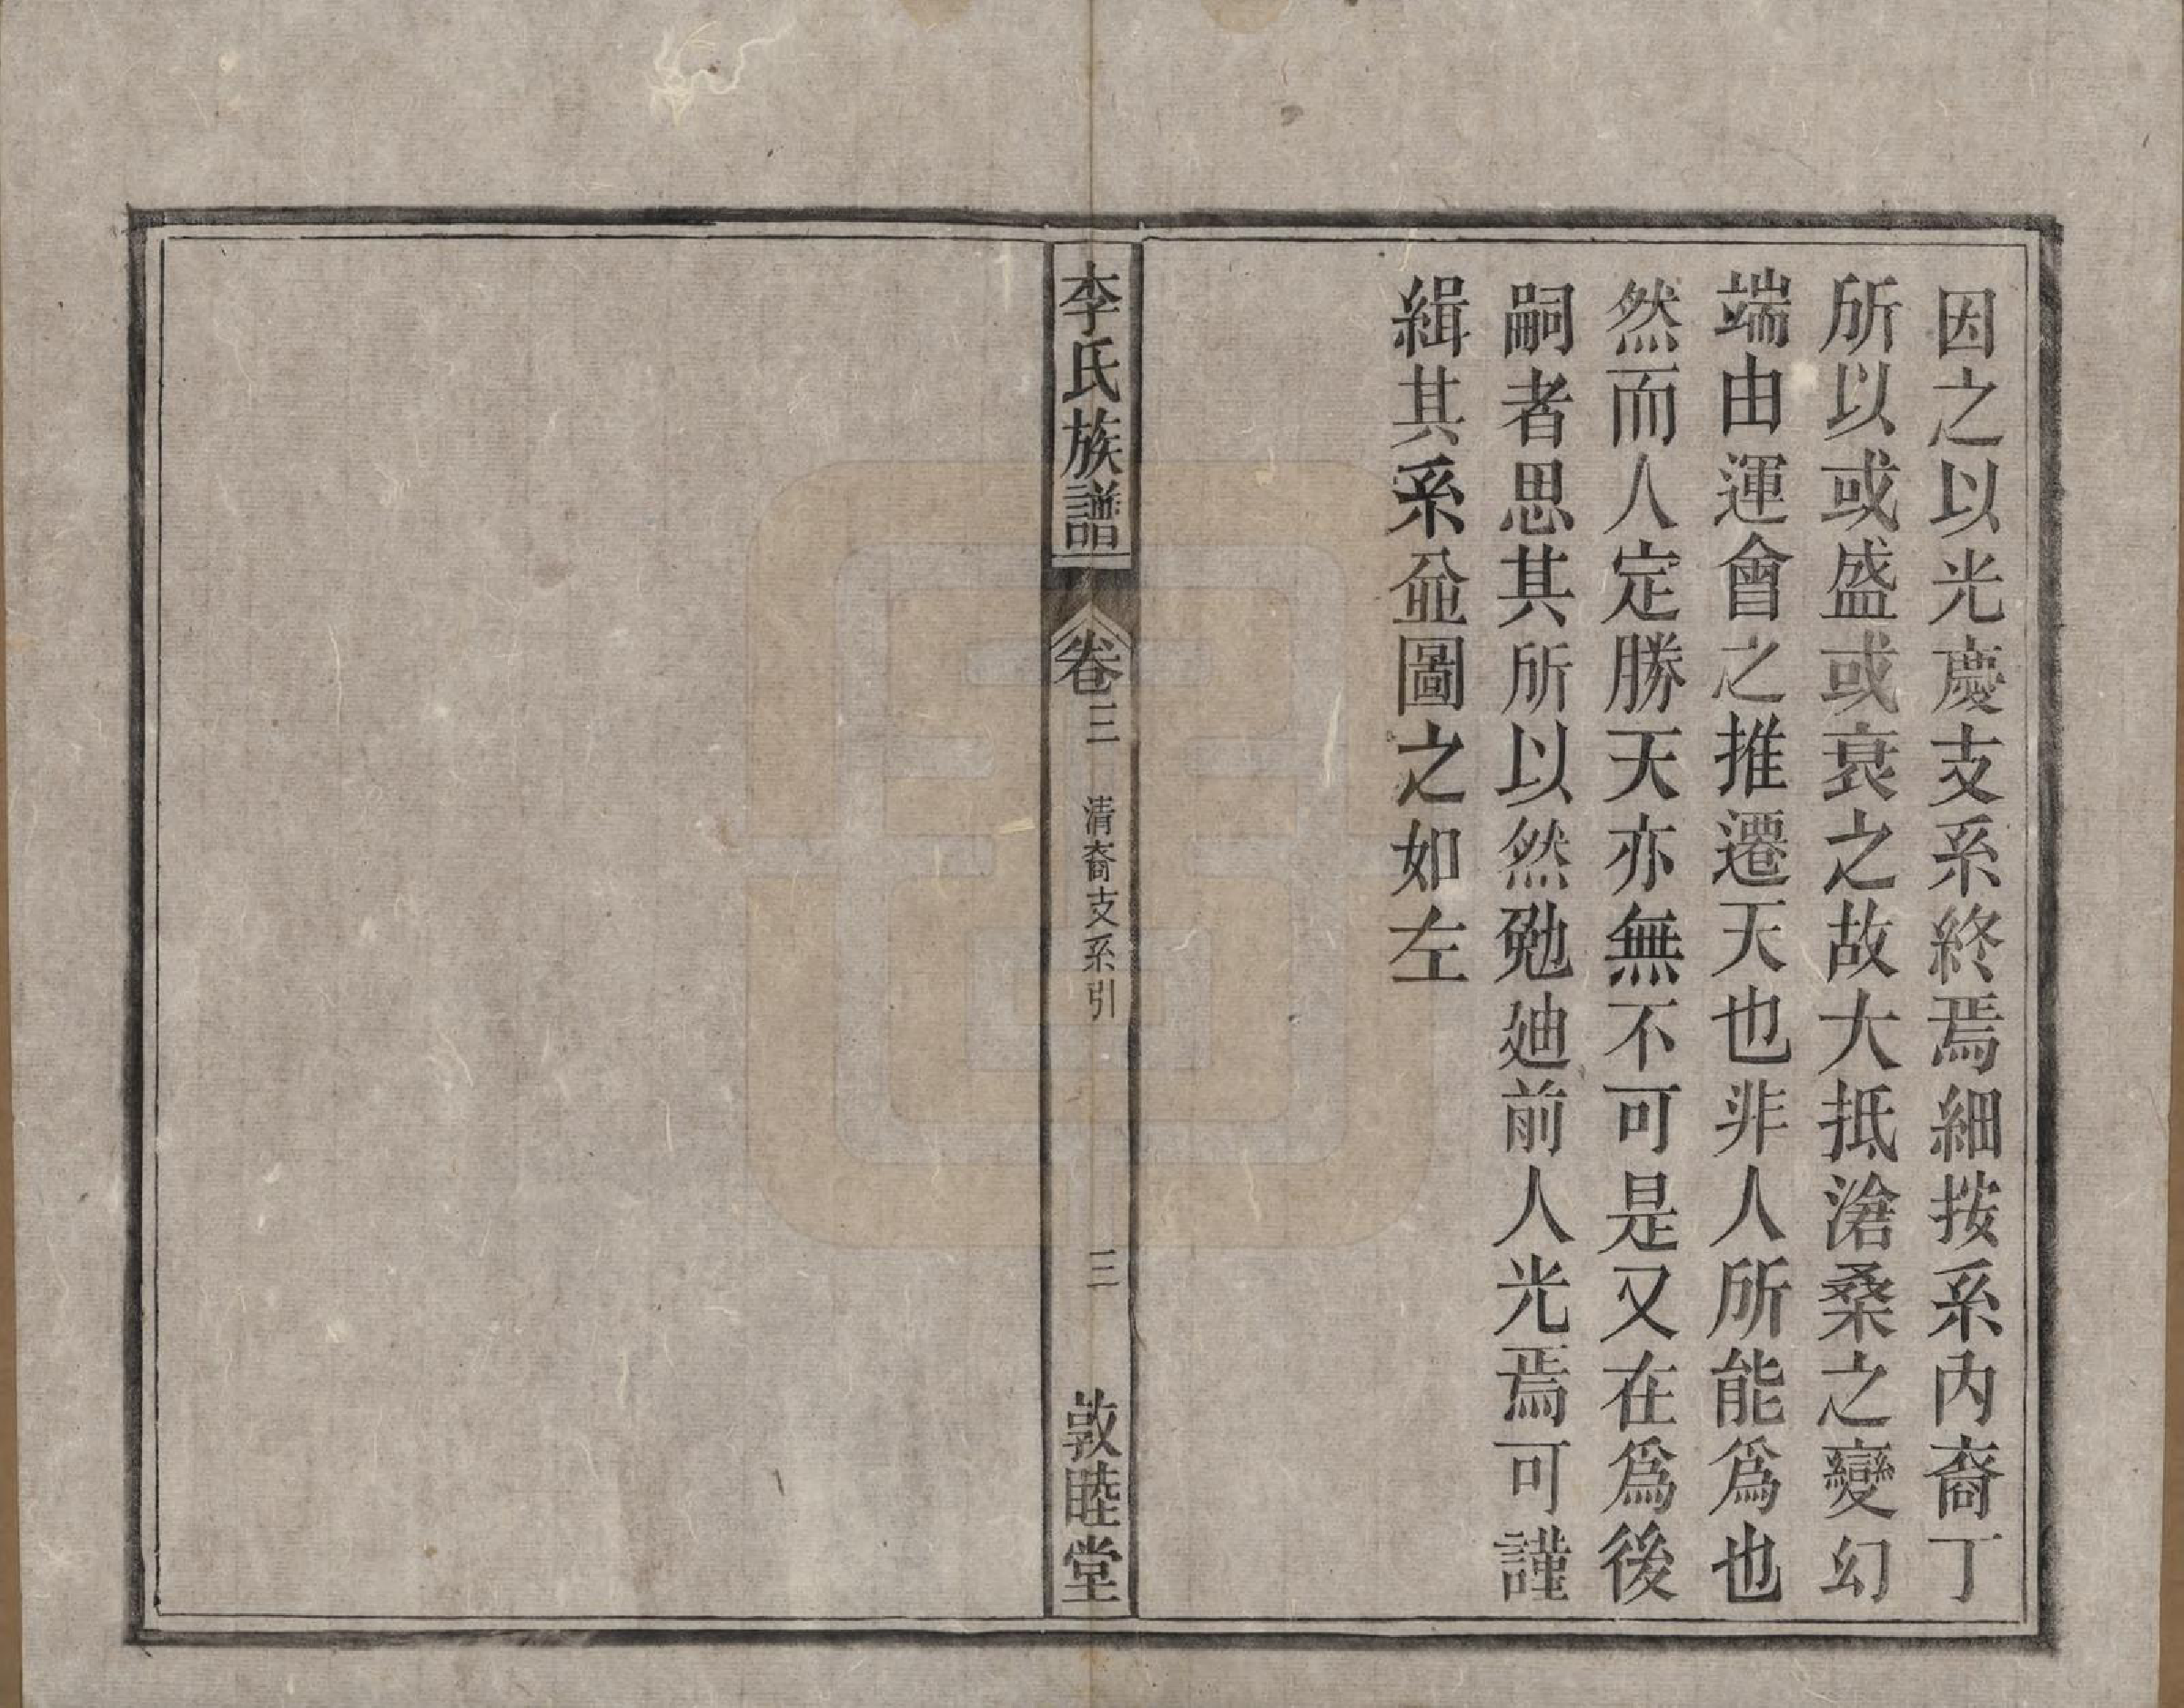 因之以光慶支系終焉細按系内裔丁
所以或盛或衰之故大抵滄桑之變幻
端由運會之推遷天也非人所能爲也
然而人定勝天亦無不可是又在爲後
嗣者思其所以然勉廸前人光焉可謹
緝其系並圖之如左
李氏族譜
卷三
清裔支系引
三
敦睦堂